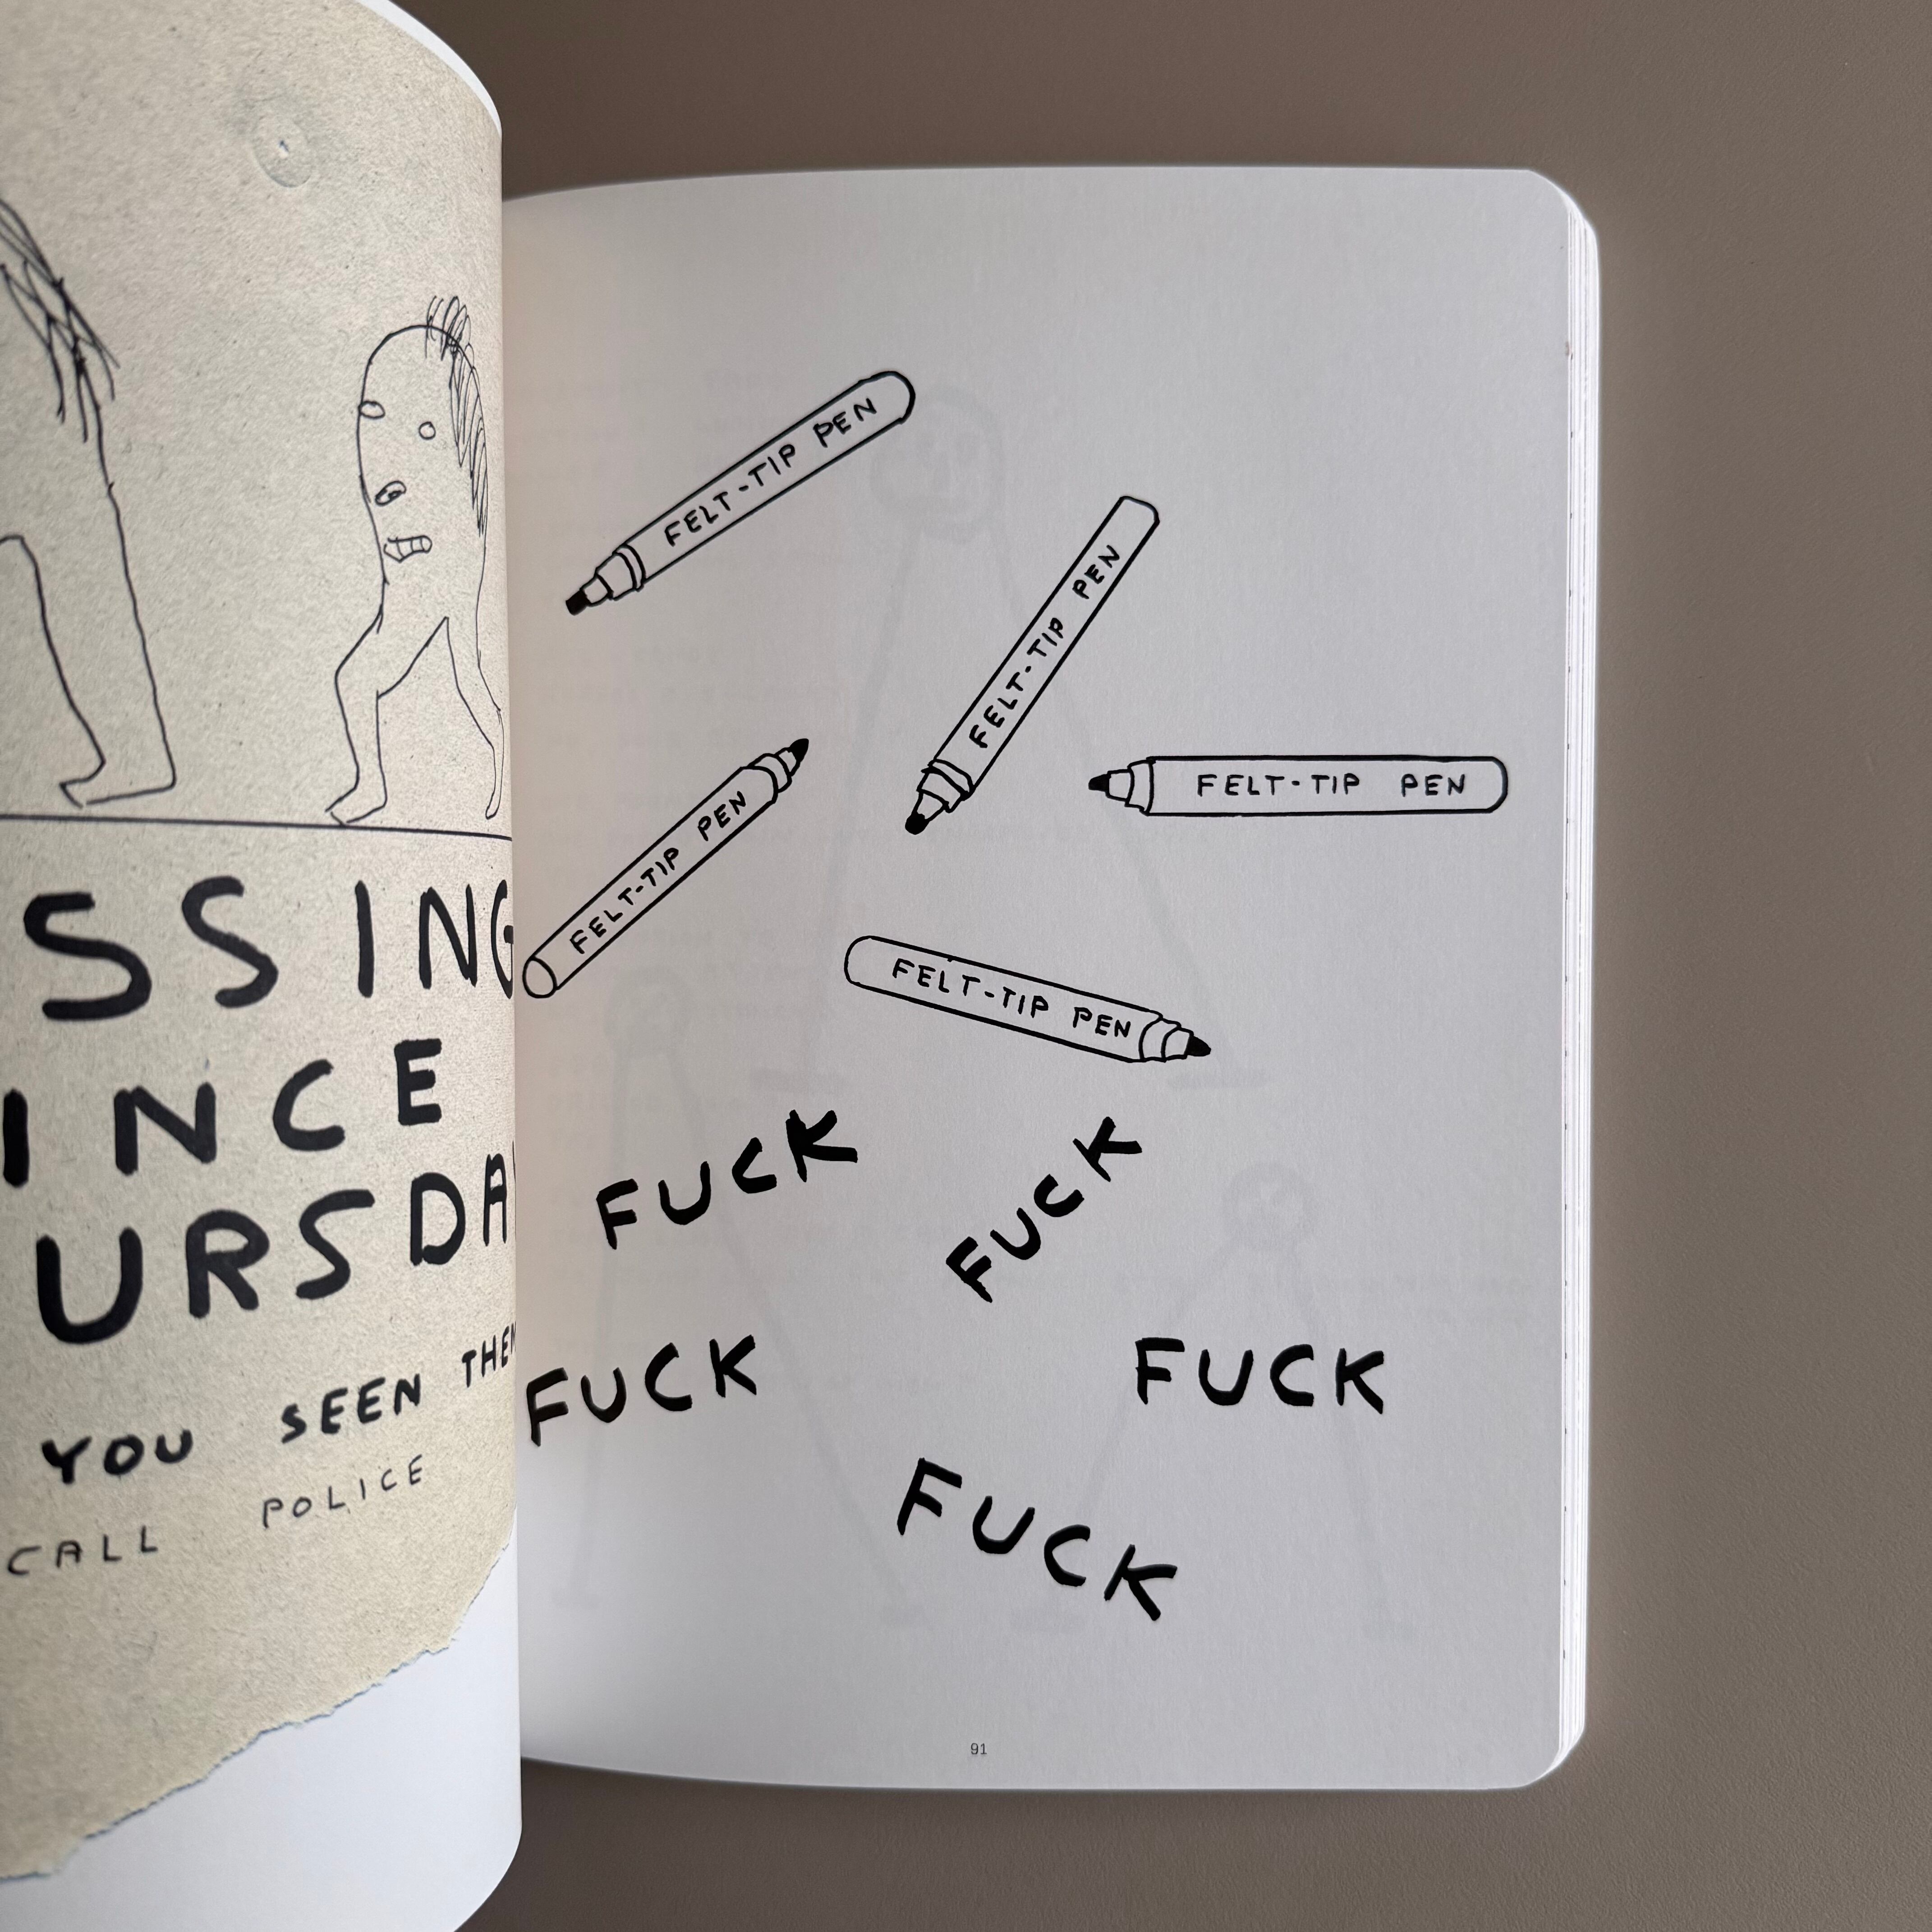 SSING
INCE
URSDA
YOU SEEN THEM
CALL POLICE
FELT-TIP PEN
FELT-TIP PEN
FELT-TIP PEN
FELT-TIP PEN
FELT-TIP PEN
FUCK
FUCK
FUCK
FUCK
FUCK
91